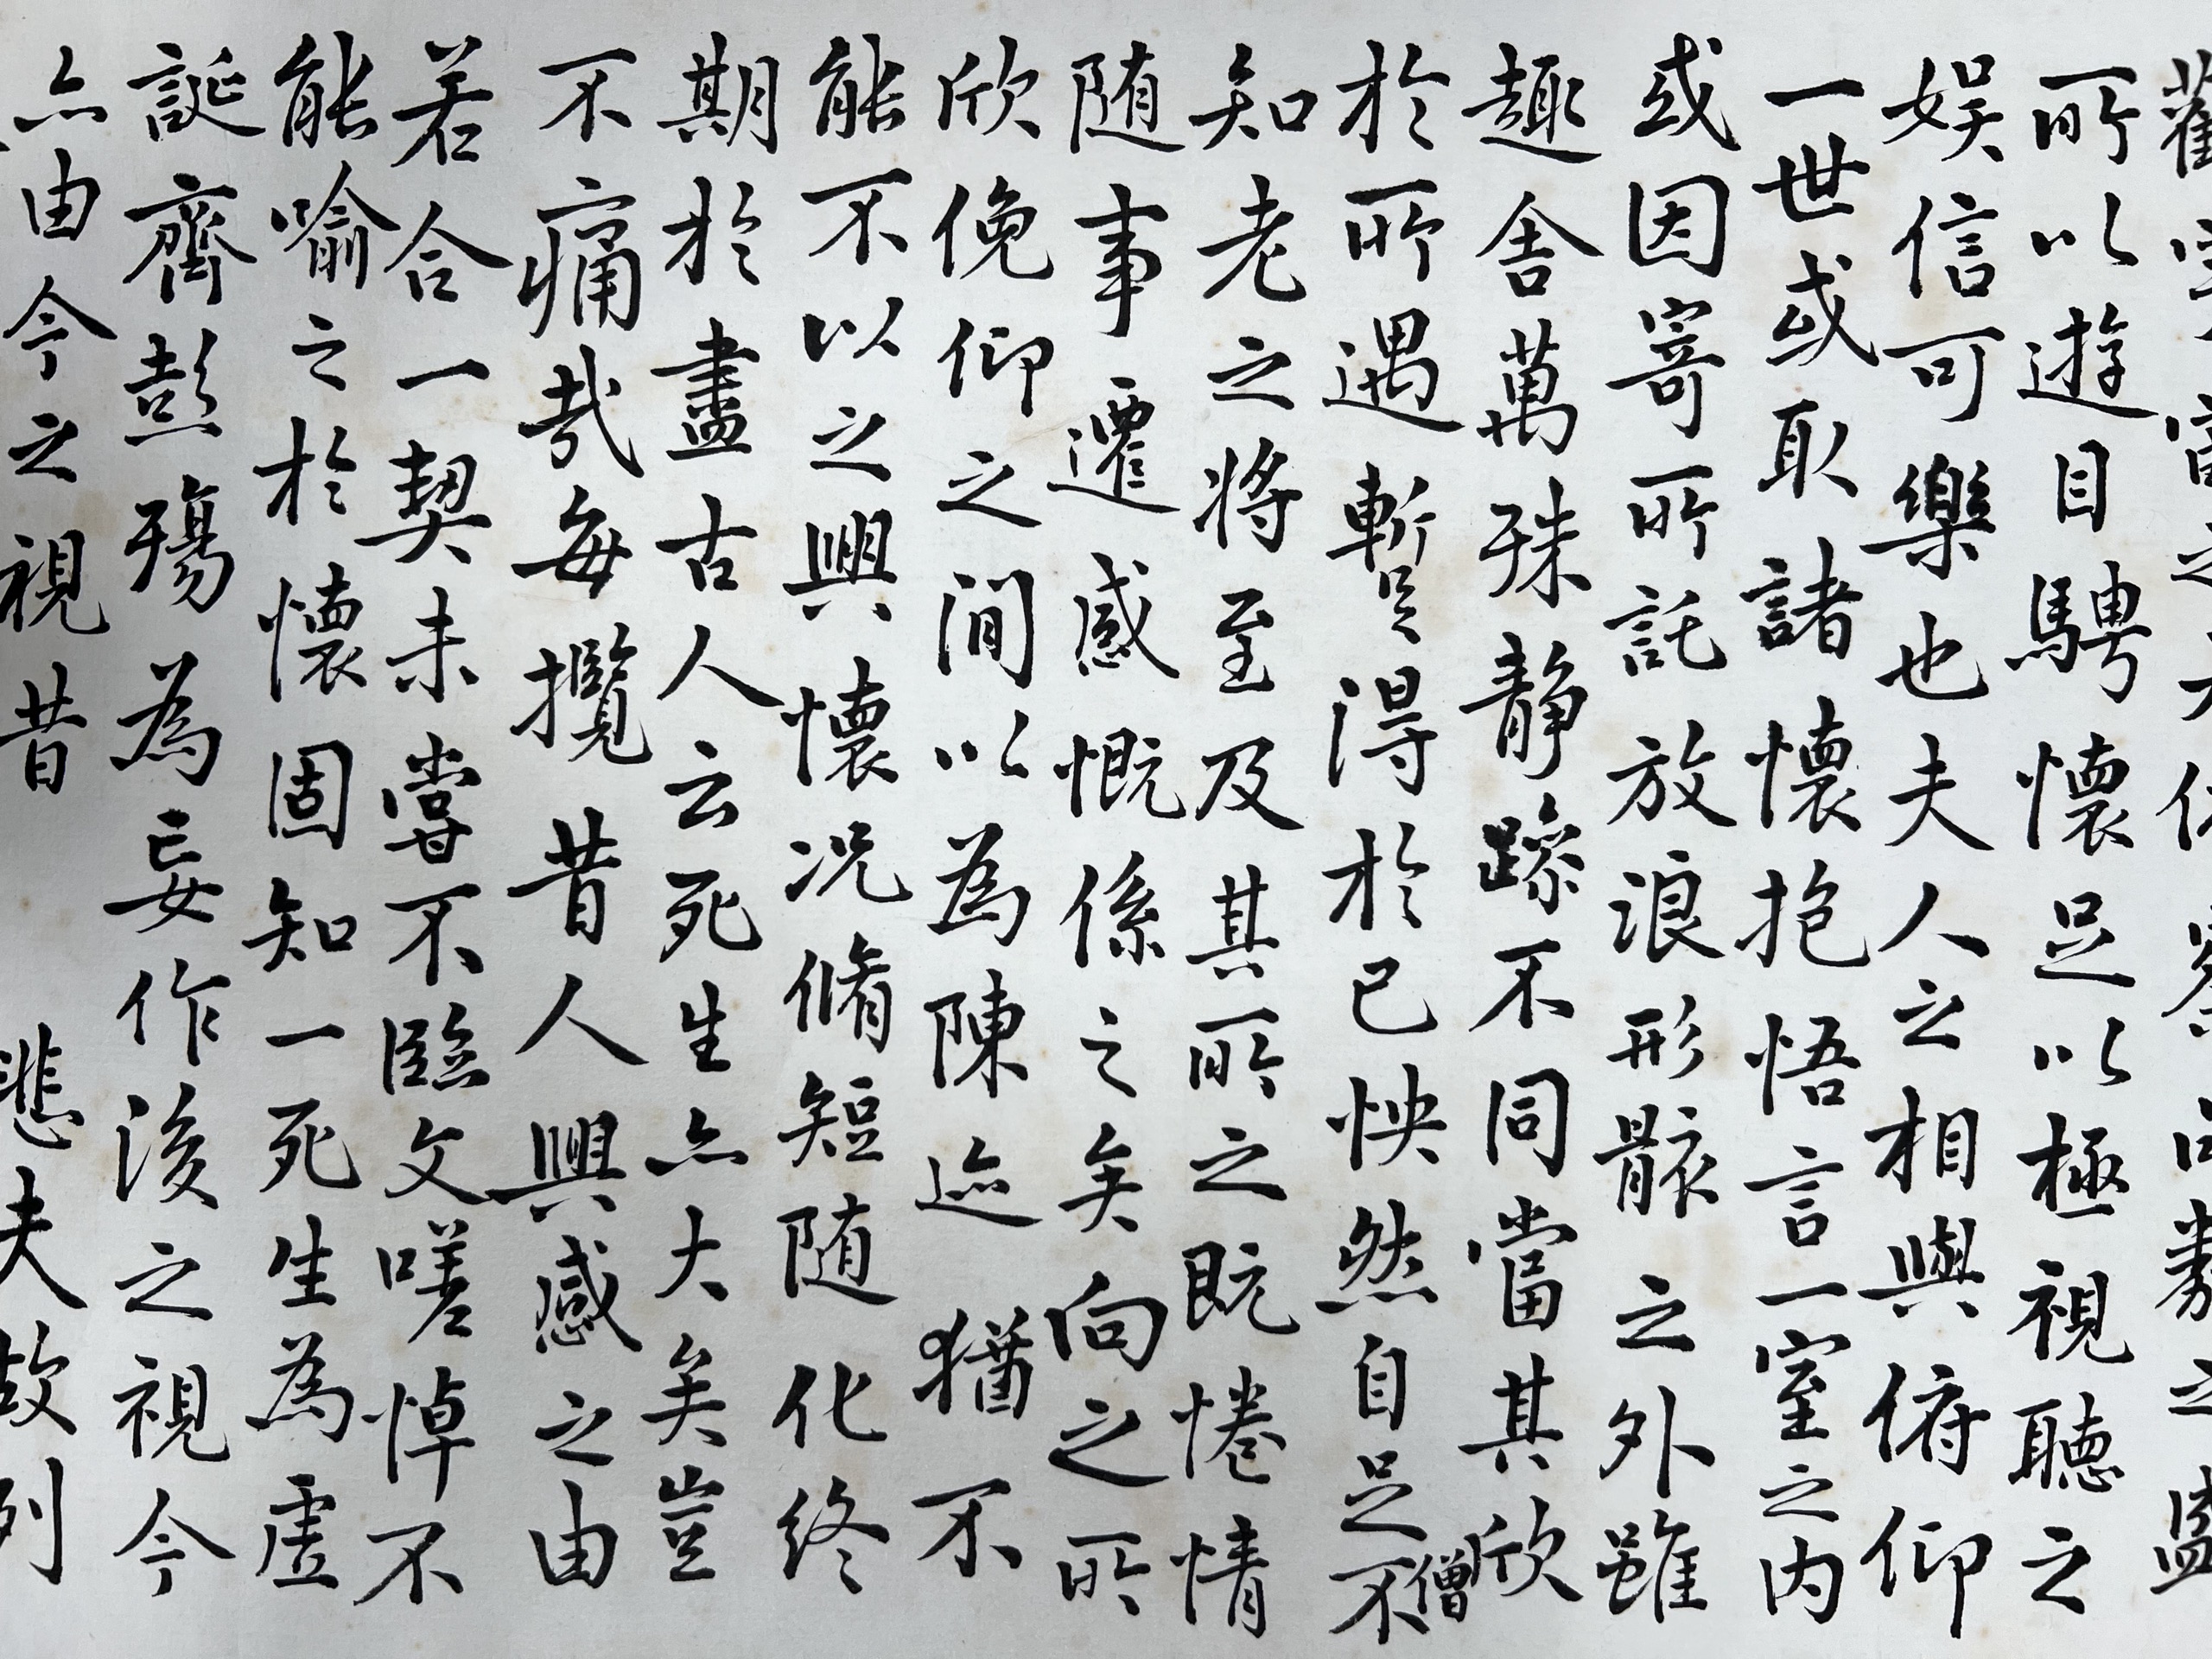 觀宇宙之大俯察品類之盛
所以遊目騁懷足以極視聽之
娛信可樂也夫人之相與俯仰
一世或取諸懷抱悟言一室之内
或因寄所託放浪形骸之外雖
趣舍萬殊靜躁不同當其欣
僧
於所遇暫得於己怏然自足不
知老之將至及其所之既惓情
随事遷感慨係之矣向之所
欣俛仰之間以為陳迹猶不
能不以之興懷況脩短随化終
期於盡古人云死生亦大矣豈
不痛哉每攬昔人興感之由
若合一契未嘗不臨文嗟悼不
能喻之於懷固知一死生為虛
誕齊彭殤為妄作後之視今
亦由今之視昔 悲夫故列